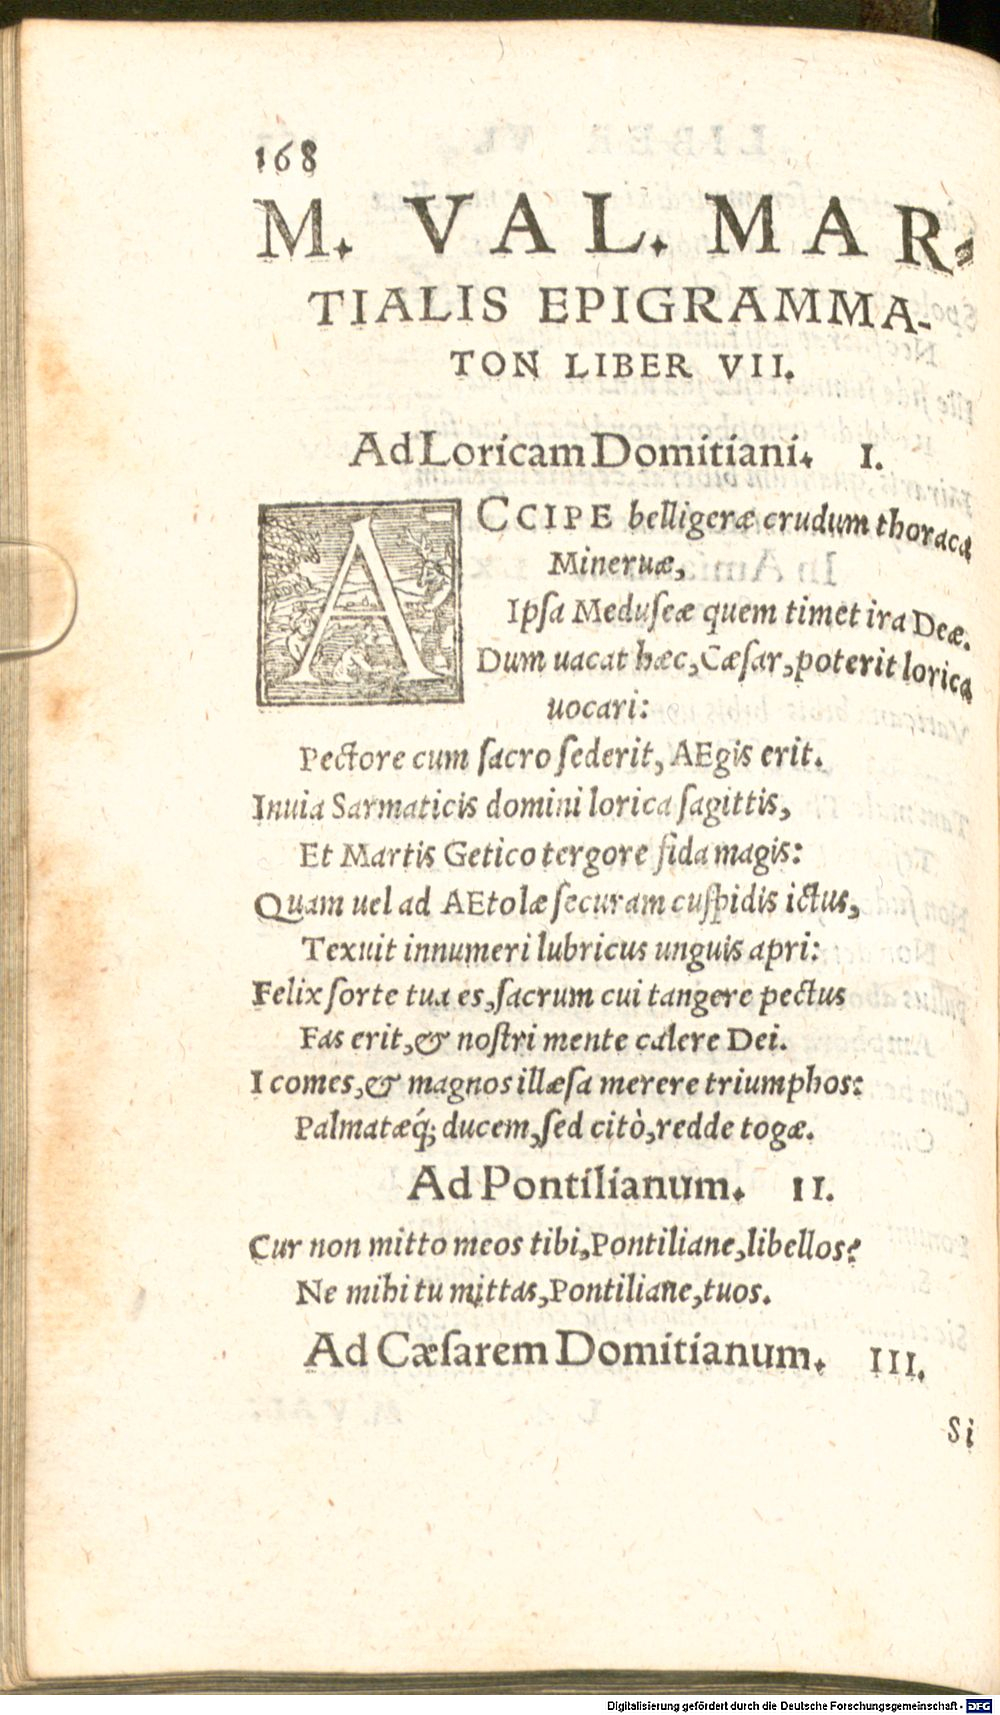 168
M. VAL. MAR-
TIALIS EPIGRAMMA-
TON LIBER VII.
Ad Loricam Domitiani. I.
ACCIPE belligeræ crudum thoraca
Mineruæ,
Ipſa Meduſeæ quem timet ira Deæ.
Dum uacat hæc, Cæſar, poterit lorica
uocari:
Pectore cum ſacro ſederit, AEgis erit.
Inuia Sarmaticis domini lorica ſagittis,
Et Martis Getico tergore fida magis:
Quam uel ad AEtolæ ſecuram cuſpidis ictus,
Texuit innumeri lubricus unguis apri:
Felix ſorte tua es, ſacrum cui tangere pectus
Fas erit, & noſtri mente calere Dei.
I comes, & magnos illæſa merere triumphos:
Palmatæq́; ducem, ſed citò, redde togæ.
Ad Pontilianum. II.
Cur non mitto meos tibi, Pontiliane, libellos?
Ne mihi tu mittas, Pontiliane, tuos.
Ad Cæſarem Domitianum. III.
Si
Digitalisierung gefördert durch die Deutsche Forschungsgemeinschaft - DFG